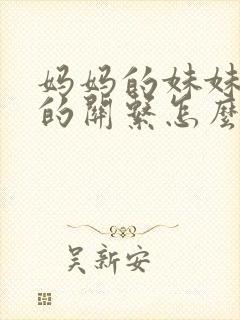 妈妈的妹妹
的關繫怎麼
吴新安